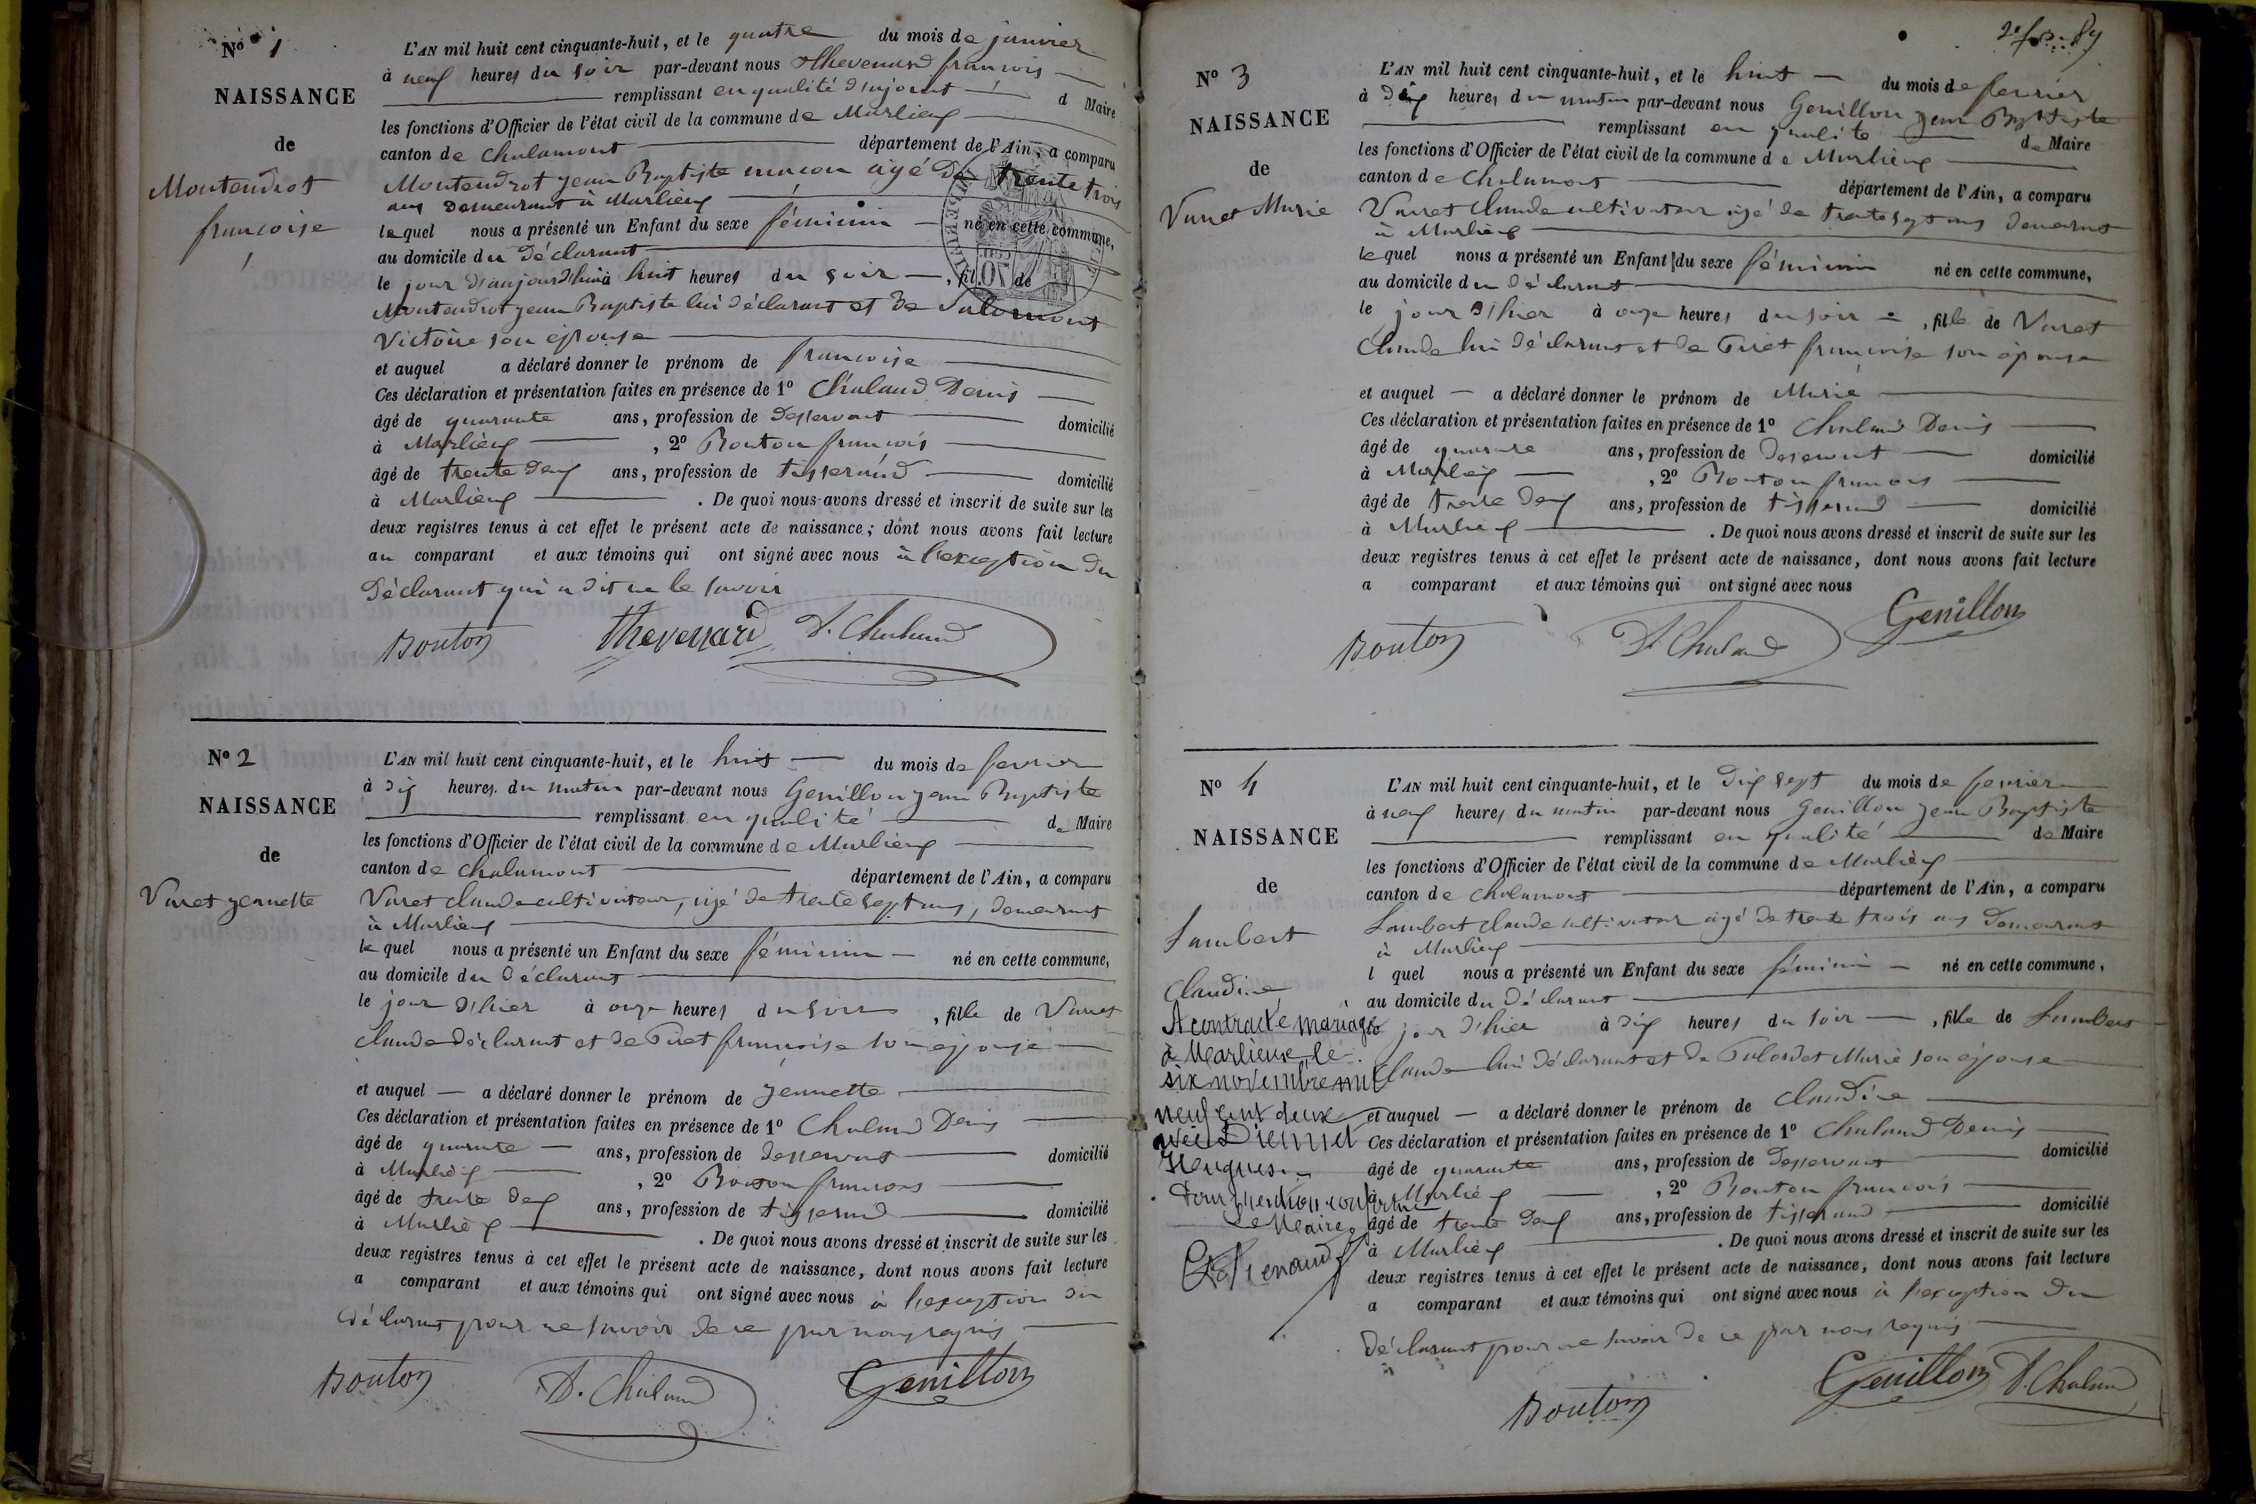 Nº 1
NAISSANCE
de
Montendrot
françoise
L'AN mil huit cent cinquante-huit, et le quatre du mois de janvier
à neuf heures du soir par-devant nous Thevenard françois
remplissant en qualité d'ajoint d Maire
les fonctions d'Officier de l'état civil de la commune de Marlieux
canton de Chalamont département de l'Ain, a comparu
Montendrot jean Baptiste macon agé de trente trois
ans demeurant à Marlieux
lequel nous a présenté un Enfant du sexe féminin né en cette commune,
au domicile du déclarant
le jour d'aujourd'hui à huit heures du soir, fil de
Montendrot jean Baptiste lui déclarant et de Salomont
Victoire son épouse
et auquel a déclaré donner le prénom de françoise
Ces déclaration et présentation faites en présence de 1º Chaland Denis
âgé de quarante ans, profession de desservant domicilié
à Marlieux, 2º Bouton françois
âgé de trente deux ans, profession de tisserand domicilié
à Marlieux. De quoi nous avons dressé et inscrit de suite sur les
deux registres tenus à cet effet le présent acte de naissance; dont nous avons fait lecture
au comparant et aux témoins qui ont signé avec nous à l'exception du
déclarant qui a dit ne le savoir
Bouton Thevenard D. Chaland
Nº 2
NAISSANCE
de
Varet jennette
L'AN mil huit cent cinquante-huit, et le huit du mois de fevrier
à dix heures du matin par-devant nous Genillon jean Baptiste
remplissant en qualité de Maire
les fonctions d'Officier de l'état civil de la commune de Marlieux
canton de Chalamont département de l'Ain, a comparu
Varet claude cultivateur, agé de trente sept ans, demeurant
à Marlieux
lequel nous a présenté un Enfant du sexe féminin né en cette commune,
au domicile du déclarant
le jour d'hier à onze heures du soir, fille de Varet
claude déclarant et de Piret françoise son epouse
et auquel a déclaré donner le prénom de jennette
Ces déclaration et présentation faites en présence de 1º Chaland Denis
âgé de quarante ans, profession de desservant domicilié
à Marlieux, 2º Bouton françois
âgé de trente deux ans, profession de tisserand domicilié
à Marlieux. De quoi nous avons dressé et inscrit de suite sur les
deux registres tenus à cet effet le présent acte de naissance, dont nous avons fait lecture
a comparant et aux témoins qui ont signé avec nous à l'exception du
déclarant pour ne savoir de ce par nous requis
Bouton D. Chaland Genillon
Nº 3
NAISSANCE
de
Varet Marie
L'AN mil huit cent cinquante-huit, et le huit du mois de fevrier
à dix heures du matin par-devant nous Genillon jean Baptiste
remplissant en qualité de Maire
les fonctions d'Officier de l'état civil de la commune de Marlieux
canton de Chalamont département de l'Ain, a comparu
Varet claude cultivateur agé de trente sept ans demeurant
à Marlieux
lequel nous a présenté un Enfant du sexe féminin né en cette commune,
au domicile du déclarant
le jour d'hier à onze heures du soir, fille de Varet
Claude lui déclarant et de Piret françoise son épouse
et auquel a déclaré donner le prénom de Marie
Ces déclaration et présentation faites en présence de 1º Chaland Denis
âgé de quarante ans, profession de desservant domicilié
à Marlieux, 2º Bouton francois
âgé de trente deux ans, profession de tisserand domicilié
à Marlieux. De quoi nous avons dressé et inscrit de suite sur les
deux registres tenus à cet effet le présent acte de naissance, dont nous avons fait lecture
a comparant et aux témoins qui ont signé avec nous
Bouton D. Chaland Genillon
Nº 4
NAISSANCE
de
Lambert
Claudine
A contracté mariage
à Marlieux le
six novembre mil
neuf cent deux
avec
Hugues
Pour mention conforme
Le Maire,
L'AN mil huit cent cinquante-huit, et le dix sept du mois de fevrier
à neuf heures du matin par-devant nous Genillon jean Baptiste
remplissant en qualité de Maire
les fonctions d'Officier de l'état civil de la commune de Marlieux
canton de Chalamont département de l'Ain, a comparu
Lambert claude cultivateur agé de trente trois ans demeurant
à Marlieux
l quel nous a présenté un Enfant du sexe féminin né en cette commune,
au domicile du déclarant
jour d'hier à dix heures du soir, fille de Lambert
Claude lui déclarant et de Marie son epouse
et auquel a déclaré donner le prénom de claudine
Ces déclaration et présentation faites en présence de 1º Chaland Denis
âgé de quarante ans, profession de desservant domicilié
à Marlieux, 2º Bouton francois
âgé de trente deux ans, profession de tisserand domicilié
à Marlieux. De quoi nous avons dressé et inscrit de suite sur les
deux registres tenus à cet effet le présent acte de naissance, dont nous avons fait lecture
a comparant et aux témoins qui ont signé avec nous à l'exception du
déclarant pour ne savoir de ce par nous requis
Bouton Genillon D. Chaland